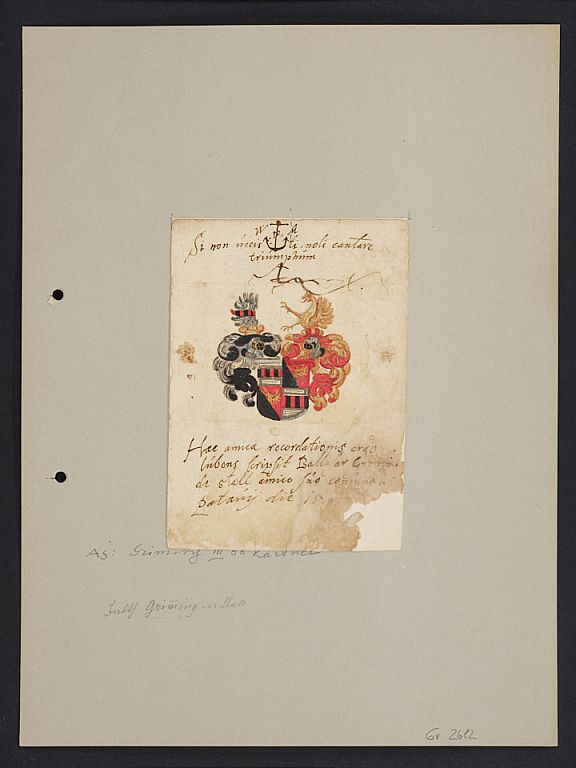 Si non vicisti noli cantare
triumphum
Haec amica recordationis ergo
lubens scripsit Balthasar Grimming
de Stall amico suo
Patavij die 15
Ag: Griming III oo Kärtner
Balth Grim̅ing v. Stal
Gv 2682